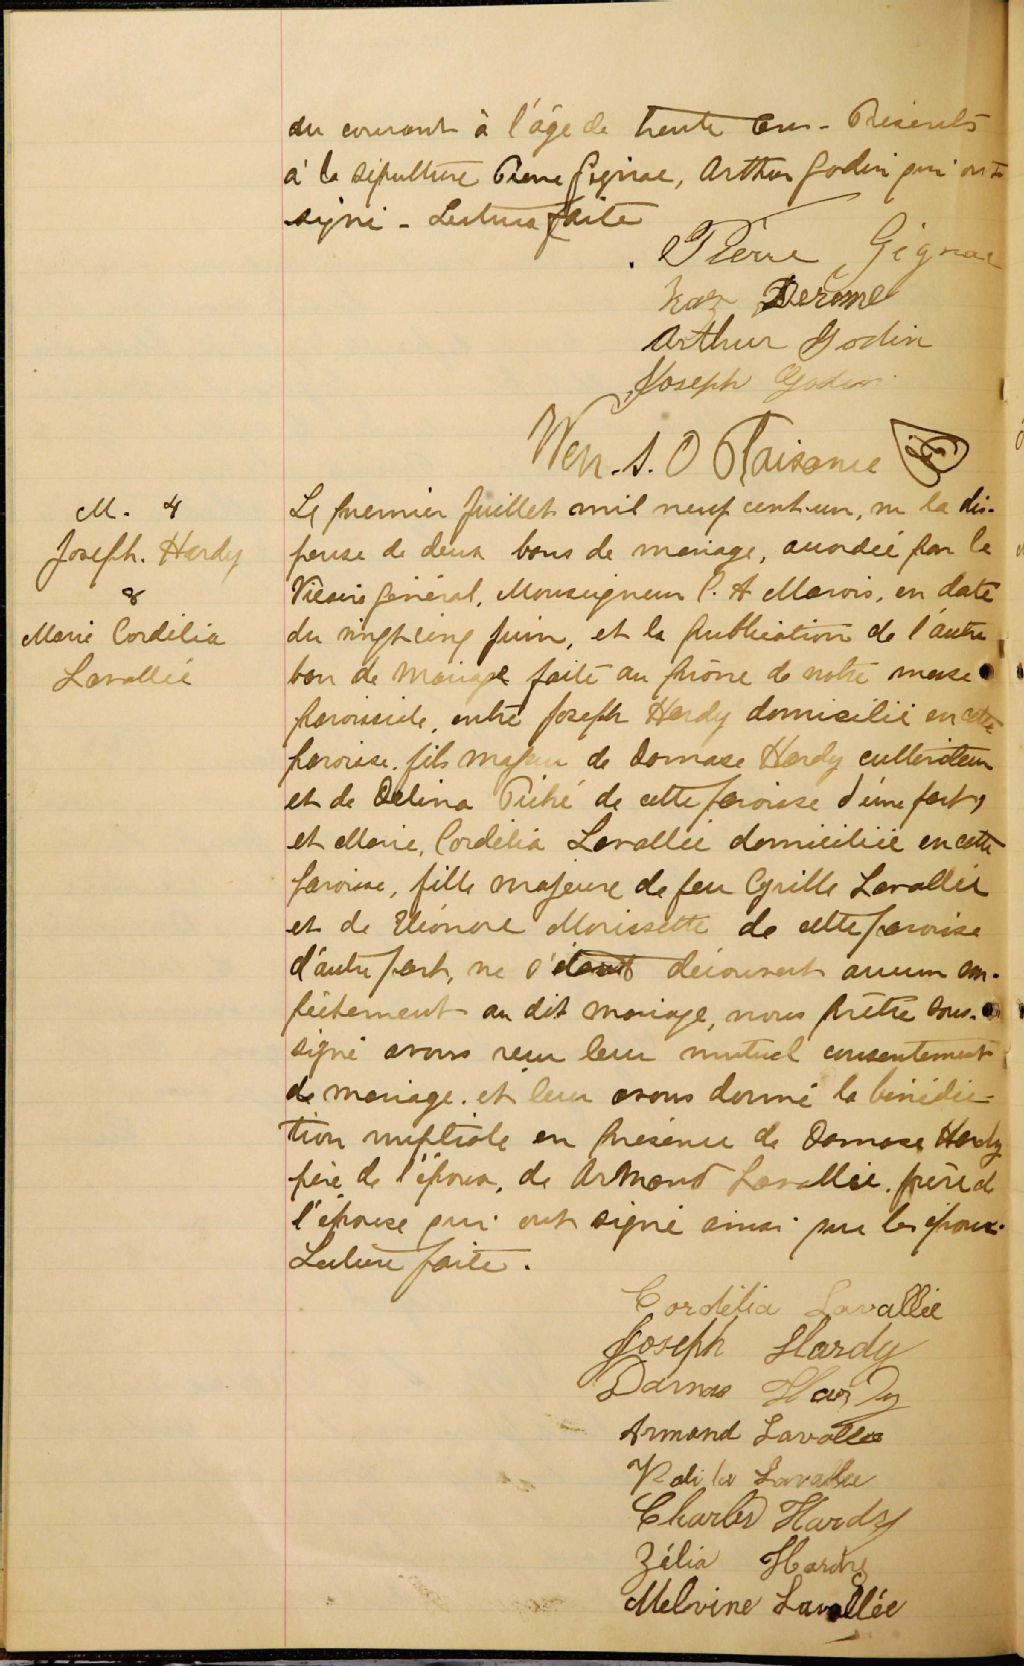 du courant à l'âge de trente ans - Présents
à la sépulture Pierre Gignac, Arthur Godin qui ont
signé - Lecture faite
Pierre Gignac
Jerome
Arthur Godin
Joseph Godin
Wen. S. O Plaisance
M. 4
Joseph. Hardy
&
Marie Cordélia
Lavallée
Le premier Juillet mil neuf cent-un, vu la dis-
pense de deux bans de mariage, accordée par le
Vicaire Général, Monseigneur C. A Marois, en date
du vingt cinq Juin, et la publication de l'autre
ban de Mariage faite au prône de notre messe
paroissiale, entre Joseph Hardy domicilié en cette
paroisse. fils majeur de Damase Hardy cultivateur
et de Delina Piché de cette paroisse d'une part,
et Marie, Cordélia Lavallée domiciliée en cette
paroisse, fille majeure de feu Cyrille Lavallée
et de Eléonore Morissette de cette paroisse
d'autre part, ne s'étant découvert aucun em-
pêchement au dit mariage, nous prêtre sous-
signé avons reçu leur mutuel consentement
de mariage. et leur avons donné la bénédic-
tion nuptiale en présence de Damase Hardy
père de l'époux, de Armand Lavallée. frère de
l'épouse qui ont signé ainsi que les époux.
Lecture faite.
Cordélia Lavallée
Joseph Hardy
Damas Hardy
Armand Lavallée
Lavallée
Charles Hardy
Zélia Hardy
Melvine Lavallée